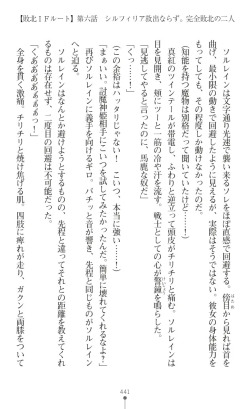 【敗北ＩＦルート】第六話　シルフィリア救出ならず。完全敗北の二人
ソルレインは文字通り光速で襲い来るソレをほぼ直感で回避する。傍目から見れば首を
曲げ、最小限の動きで回避したように見えるが、実際はそうではない。彼女の身体能力を
もってしても、その程度しか動けなかったのだ。
（知能を持つ魔物は別格だって聞いていたけど……！）
真紅のツインテールが帯電し、ふわりと逆立って頭皮がチリチリと痛む。ソルレインは
目を見開き、頬にツーと一筋の冷や汗を流す。戦士としての心が警鐘を鳴らした。
「見逃してやると言ったのに、馬鹿な奴だ」
「くっ……！」
（この余裕はハッタリじゃない！　こいつ、本当に強い…！）
「まぁいい。討魔神姫相手にこいつを試してみたかったんだ。簡単に壊れてくれるなよ？」
再びソルレインに義手を向けるギドロ。バチッと音が響き、先程と同じものがソルレイン
へと迫る。
ソルレインはなんとか回避けようとするものの、先程と違ってそれとの距離を教えてくれ
るものは存在せず、二度目の回避は不可能だった。
「くぁあああぁぁっ！」
全身を貫く激流、チリチリと焼け焦げる肌。四肢に痺れが走り、ガクンと両膝をついて
441